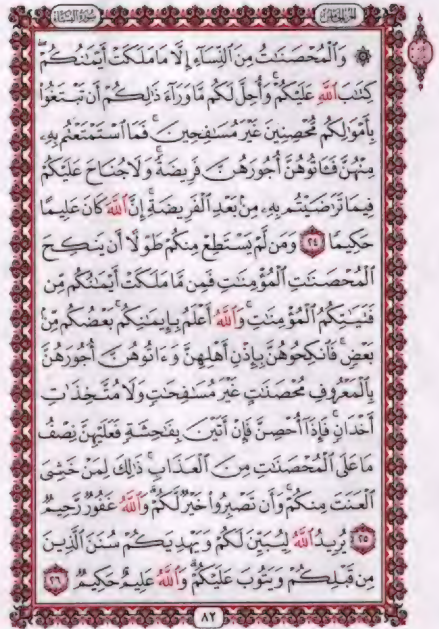 سُورَةُ النِّسَاءِ
الجُزْءُ الخَامِسُ
۞ وَالْمُحْصَنَاتُ مِنَ النِّسَاءِ إِلَّا مَا مَلَكَتْ أَيْمَانُكُمْ ۖ
كِتَابَ اللَّهِ عَلَيْكُمْ ۚ وَأُحِلَّ لَكُم مَّا وَرَاءَ ذَٰلِكُمْ أَن تَبْتَغُوا
بِأَمْوَالِكُم مُّحْصِنِينَ غَيْرَ مُسَافِحِينَ ۚ فَمَا اسْتَمْتَعْتُم بِهِ
مِنْهُنَّ فَآتُوهُنَّ أُجُورَهُنَّ فَرِيضَةً ۚ وَلَا جُنَاحَ عَلَيْكُمْ
فِيمَا تَرَاضَيْتُم بِهِ مِن بَعْدِ الْفَرِيضَةِ ۚ إِنَّ اللَّهَ كَانَ عَلِيمًا
حَكِيمًا ٢٤ وَمَن لَّمْ يَسْتَطِعْ مِنكُمْ طَوْلًا أَن يَنكِحَ
الْمُحْصَنَاتِ الْمُؤْمِنَاتِ فَمِن مَّا مَلَكَتْ أَيْمَانُكُم مِّن
فَتَيَاتِكُمُ الْمُؤْمِنَاتِ ۚ وَاللَّهُ أَعْلَمُ بِإِيمَانِكُم ۚ بَعْضُكُم مِّن
بَعْضٍ ۚ فَانكِحُوهُنَّ بِإِذْنِ أَهْلِهِنَّ وَآتُوهُنَّ أُجُورَهُنَّ
بِالْمَعْرُوفِ مُحْصَنَاتٍ غَيْرَ مُسَافِحَاتٍ وَلَا مُتَّخِذَاتِ
أَخْدَانٍ ۚ فَإِذَا أُحْصِنَّ فَإِنْ أَتَيْنَ بِفَاحِشَةٍ فَعَلَيْهِنَّ نِصْفُ
مَا عَلَى الْمُحْصَنَاتِ مِنَ الْعَذَابِ ۚ ذَٰلِكَ لِمَنْ خَشِيَ
الْعَنَتَ مِنكُمْ ۚ وَأَن تَصْبِرُوا خَيْرٌ لَّكُمْ ۗ وَاللَّهُ غَفُورٌ رَّحِيمٌ
٢٥ يُرِيدُ اللَّهُ لِيُبَيِّنَ لَكُمْ وَيَهْدِيَكُمْ سُنَنَ الَّذِينَ
مِن قَبْلِكُمْ وَيَتُوبَ عَلَيْكُمْ ۗ وَاللَّهُ عَلِيمٌ حَكِيمٌ ٢٦
٨٢